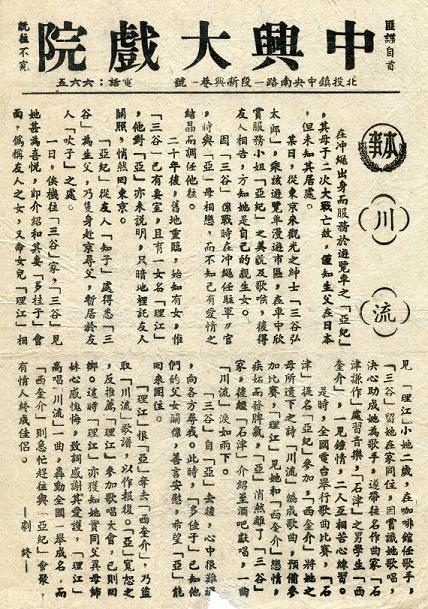 匪諜自首
中興大戲院
既往不究
北投鎮中央南路一段新興巷一號 電話：六六五
本事
川流
在沖繩出身而服務於遊覽車之「亞紀」
，其母于二次大戰亡故，僅知生父在日本
但未知其居處。
某日，從東京來觀光之紳士「三谷弘
太郎」，乘該遊覽車漫遊市區，在車中欣
賞服務小姐「亞紀」之美貌及歌喉，後得
友人相告，方知她是自己的親生女。
因「三谷」係戰時在沖繩任駐軍官
時與「亞」母相戀，而不知已有愛情之
結晶而調任他往。
二十年後，舊地重臨，始知有女，惟
「三谷」已有妻室，且有一名「理江」之女
他對「亞」亦未說明，只暗地裡託友人
關照，悄然囘東京。
「亞紀」從友人「知子」處得悉「三
谷」為生父，乃隻身赴京尋父，暫居於友
人「吹子」之處。
一日，俟機往「三谷」家，「三谷」見
她甚為喜悅，即介紹和其妻「多佳子」會
面，偽稱友人之女，又命女兒「理江」相
見「理江」小她二歲，在咖啡館任歌手，
「三谷」留她在家同住，因賞識她歌唱，
決心助成她為歌手，遂帶往名作曲家「石
津謙作」處習音樂，「石津」之男學生「西
奎介」一見鍾情，二人亞相苦心練習。
是時，全國電台舉行歌曲比賽，「石
津」提名「亞紀」參加，「西奎介」將她之
母所遺下之詩「川流」編成歌曲，預備參
加比賽，「理江」見她和「西奎介」戀情，
疾妬而務脾氣，「亞」消然離了「三谷」
家後，經「石津」介紹至酒吧獻唱，一曲
「川流」淚如雨下。
「三谷」自「亞」去後，心中很難過
，向各方尋我。此時，「多佳子」已知他
們的父女關係，善言安慰，希望「亞」能
囘來團住。
「理江」恨「亞」奪去「西奎介」，乃盜
取「川流」歌譜，以作報復。「亞」寬恕之
，反推薦「理江」參加歌唱大會，已則囘
鄉。這時，「理江」亦獲知她實同父異母姊
妹心感愧悔，致詞感謝其愛護，「理江」
高唱「川流」一曲，轟動全國一舉成名，而
「西奎介」則急忙趕往與「亞紀」會聚，
有情人終成佳侶。
—劇終—